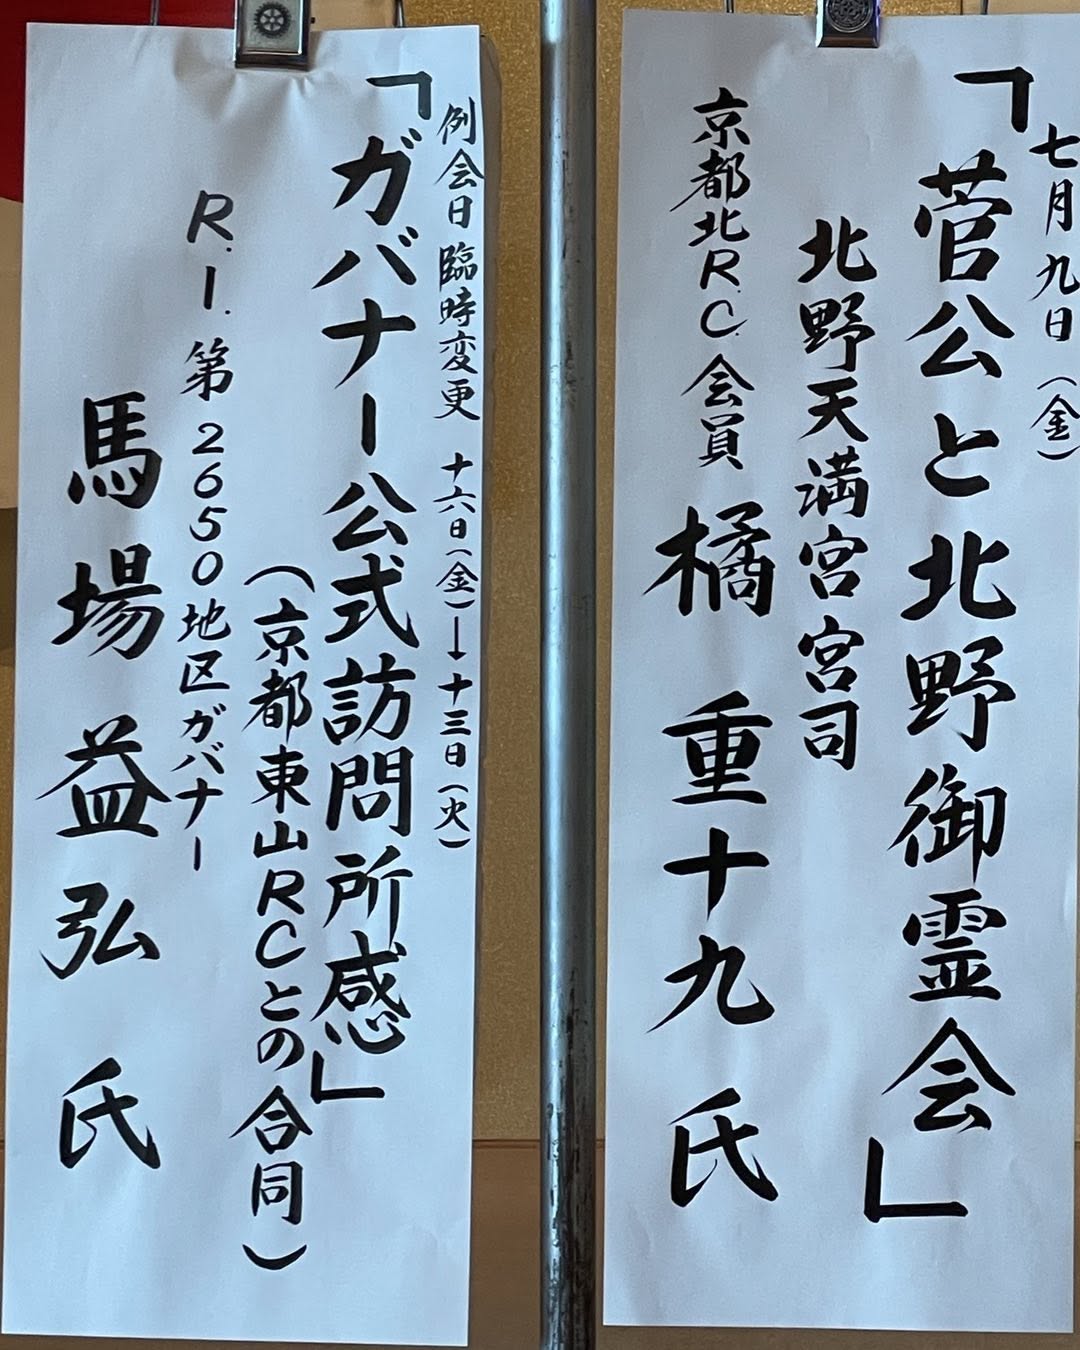 七月九日（金）
「菅公と北野御霊会」
北野天満宮宮司
京都北R.C.会員 橘 重十九 氏
例会日臨時変更 十六日（金）→十三日（火）
「ガバナー公式訪問所感」
（京都東山RCとの合同）
R.I.第2650地区ガバナー
馬場 益弘 氏